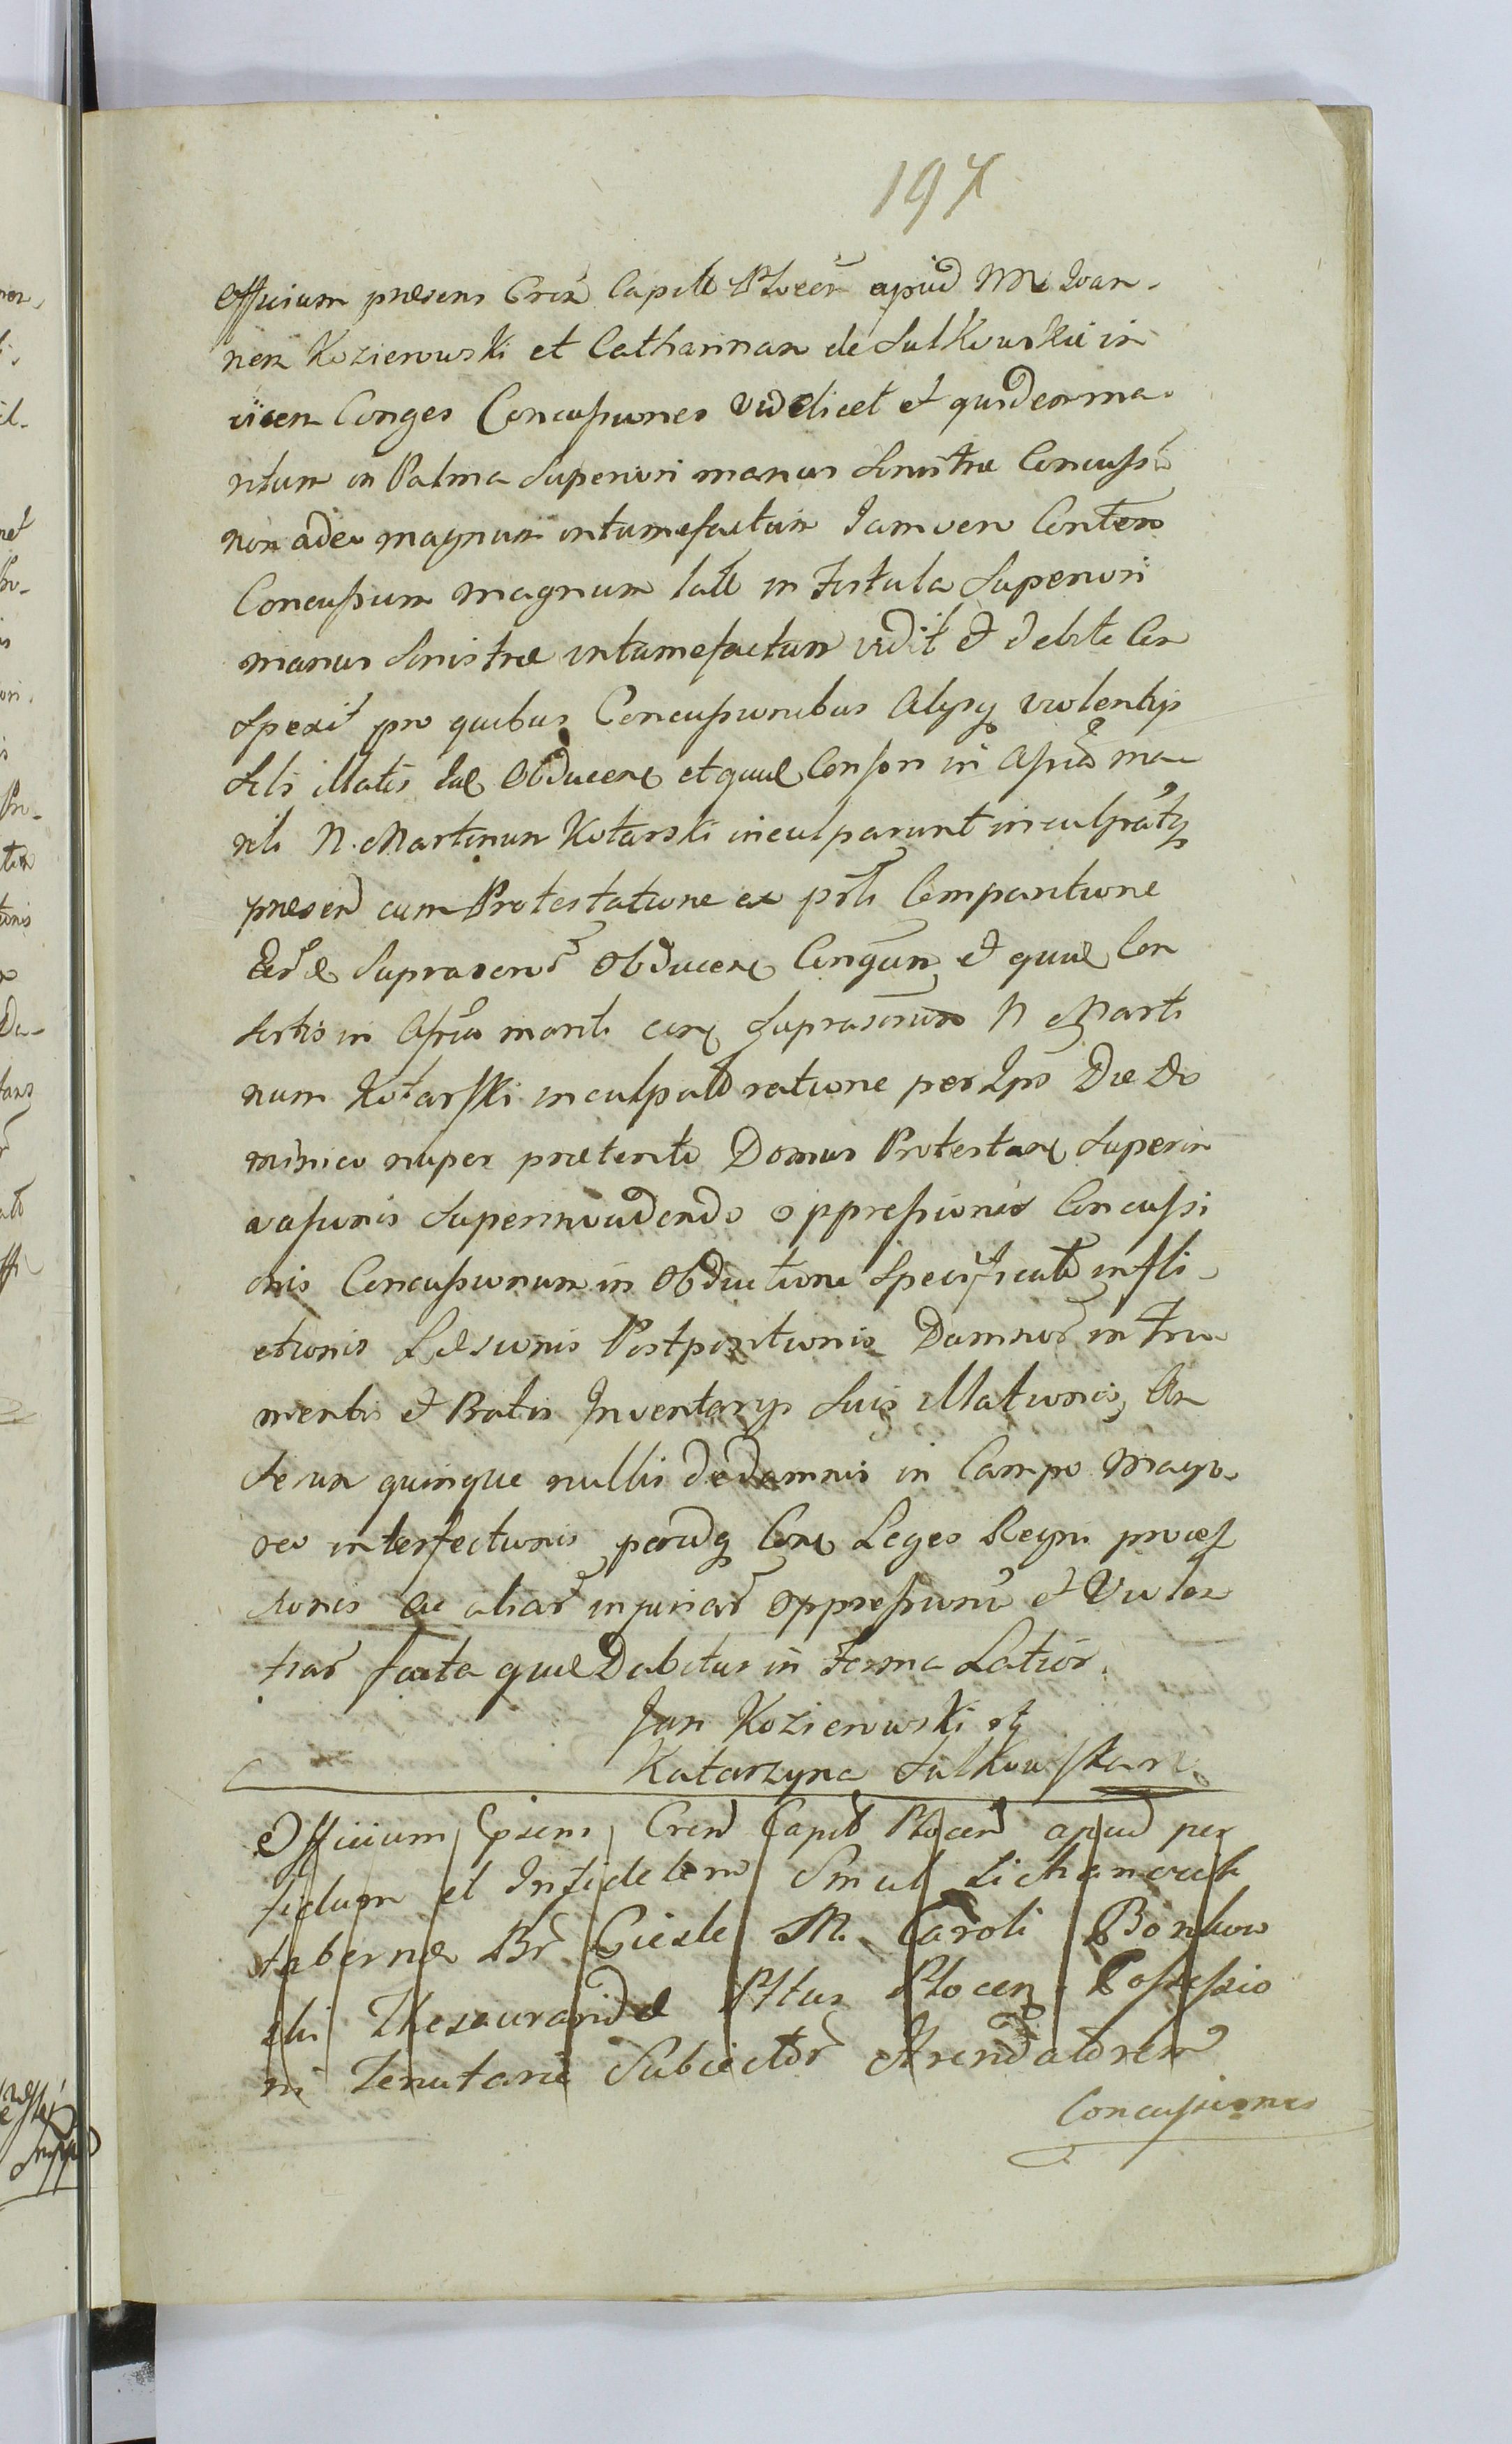 197
Officium præsens Cren Capitle Plocen apud M Ioan-
nem Kozierowski et Catharinam de Sulkowskie in
vicem Conges Concussiones videlicet et quidem ma-
ritum in Palma Superiori manus Sinistræ Concuss
non adeo magnum intumefactum Iam vero
Concussum magnum in Fistula Superiori
manus Sinistræ intumefactum vidit et debite Con
spexit pro quibus Concussionibus Alysq violentys
Sibi illatis Obducen et quæ Consors in Assia ma-
riti N. Martinum Kotarski inculparunt inculpatq
præsen cum Protestatione ex prti Comparitione
Suprascr Obducen Congum et quæ Con
sortis in Assia mariti suprascrium N Marti
num Kotarski inculpat ratione per Ips Die Do
minico nuper præterito Domus Protestan Superin
vasionis Superinvadendo oppressionis Concussi
onis Concussionum in Obductione Specificat infli-
ctionis Læsionis Postpositionis Damnor in Fru
mentis et Pratis Inventarys Suis illationis, An
serum quinque nullis de damnis in Campo Magn-
eo interfectionis Leges Regni proces
sionis Ac aliar injuriar oppressionu et Violen
tiar facta quæ Dabitur in Forma Latior.
Jan Kozierowski
Katarzyna Sulkowska
Officium Cren Capit Plocen apud per
fidum et Infidelem Smul Lichanouik
tabernæ M. Caroli
Thesauraridæ Pltus Plocen Possessio
ni Tenutarie Subiector Arendatorem
Concussiones